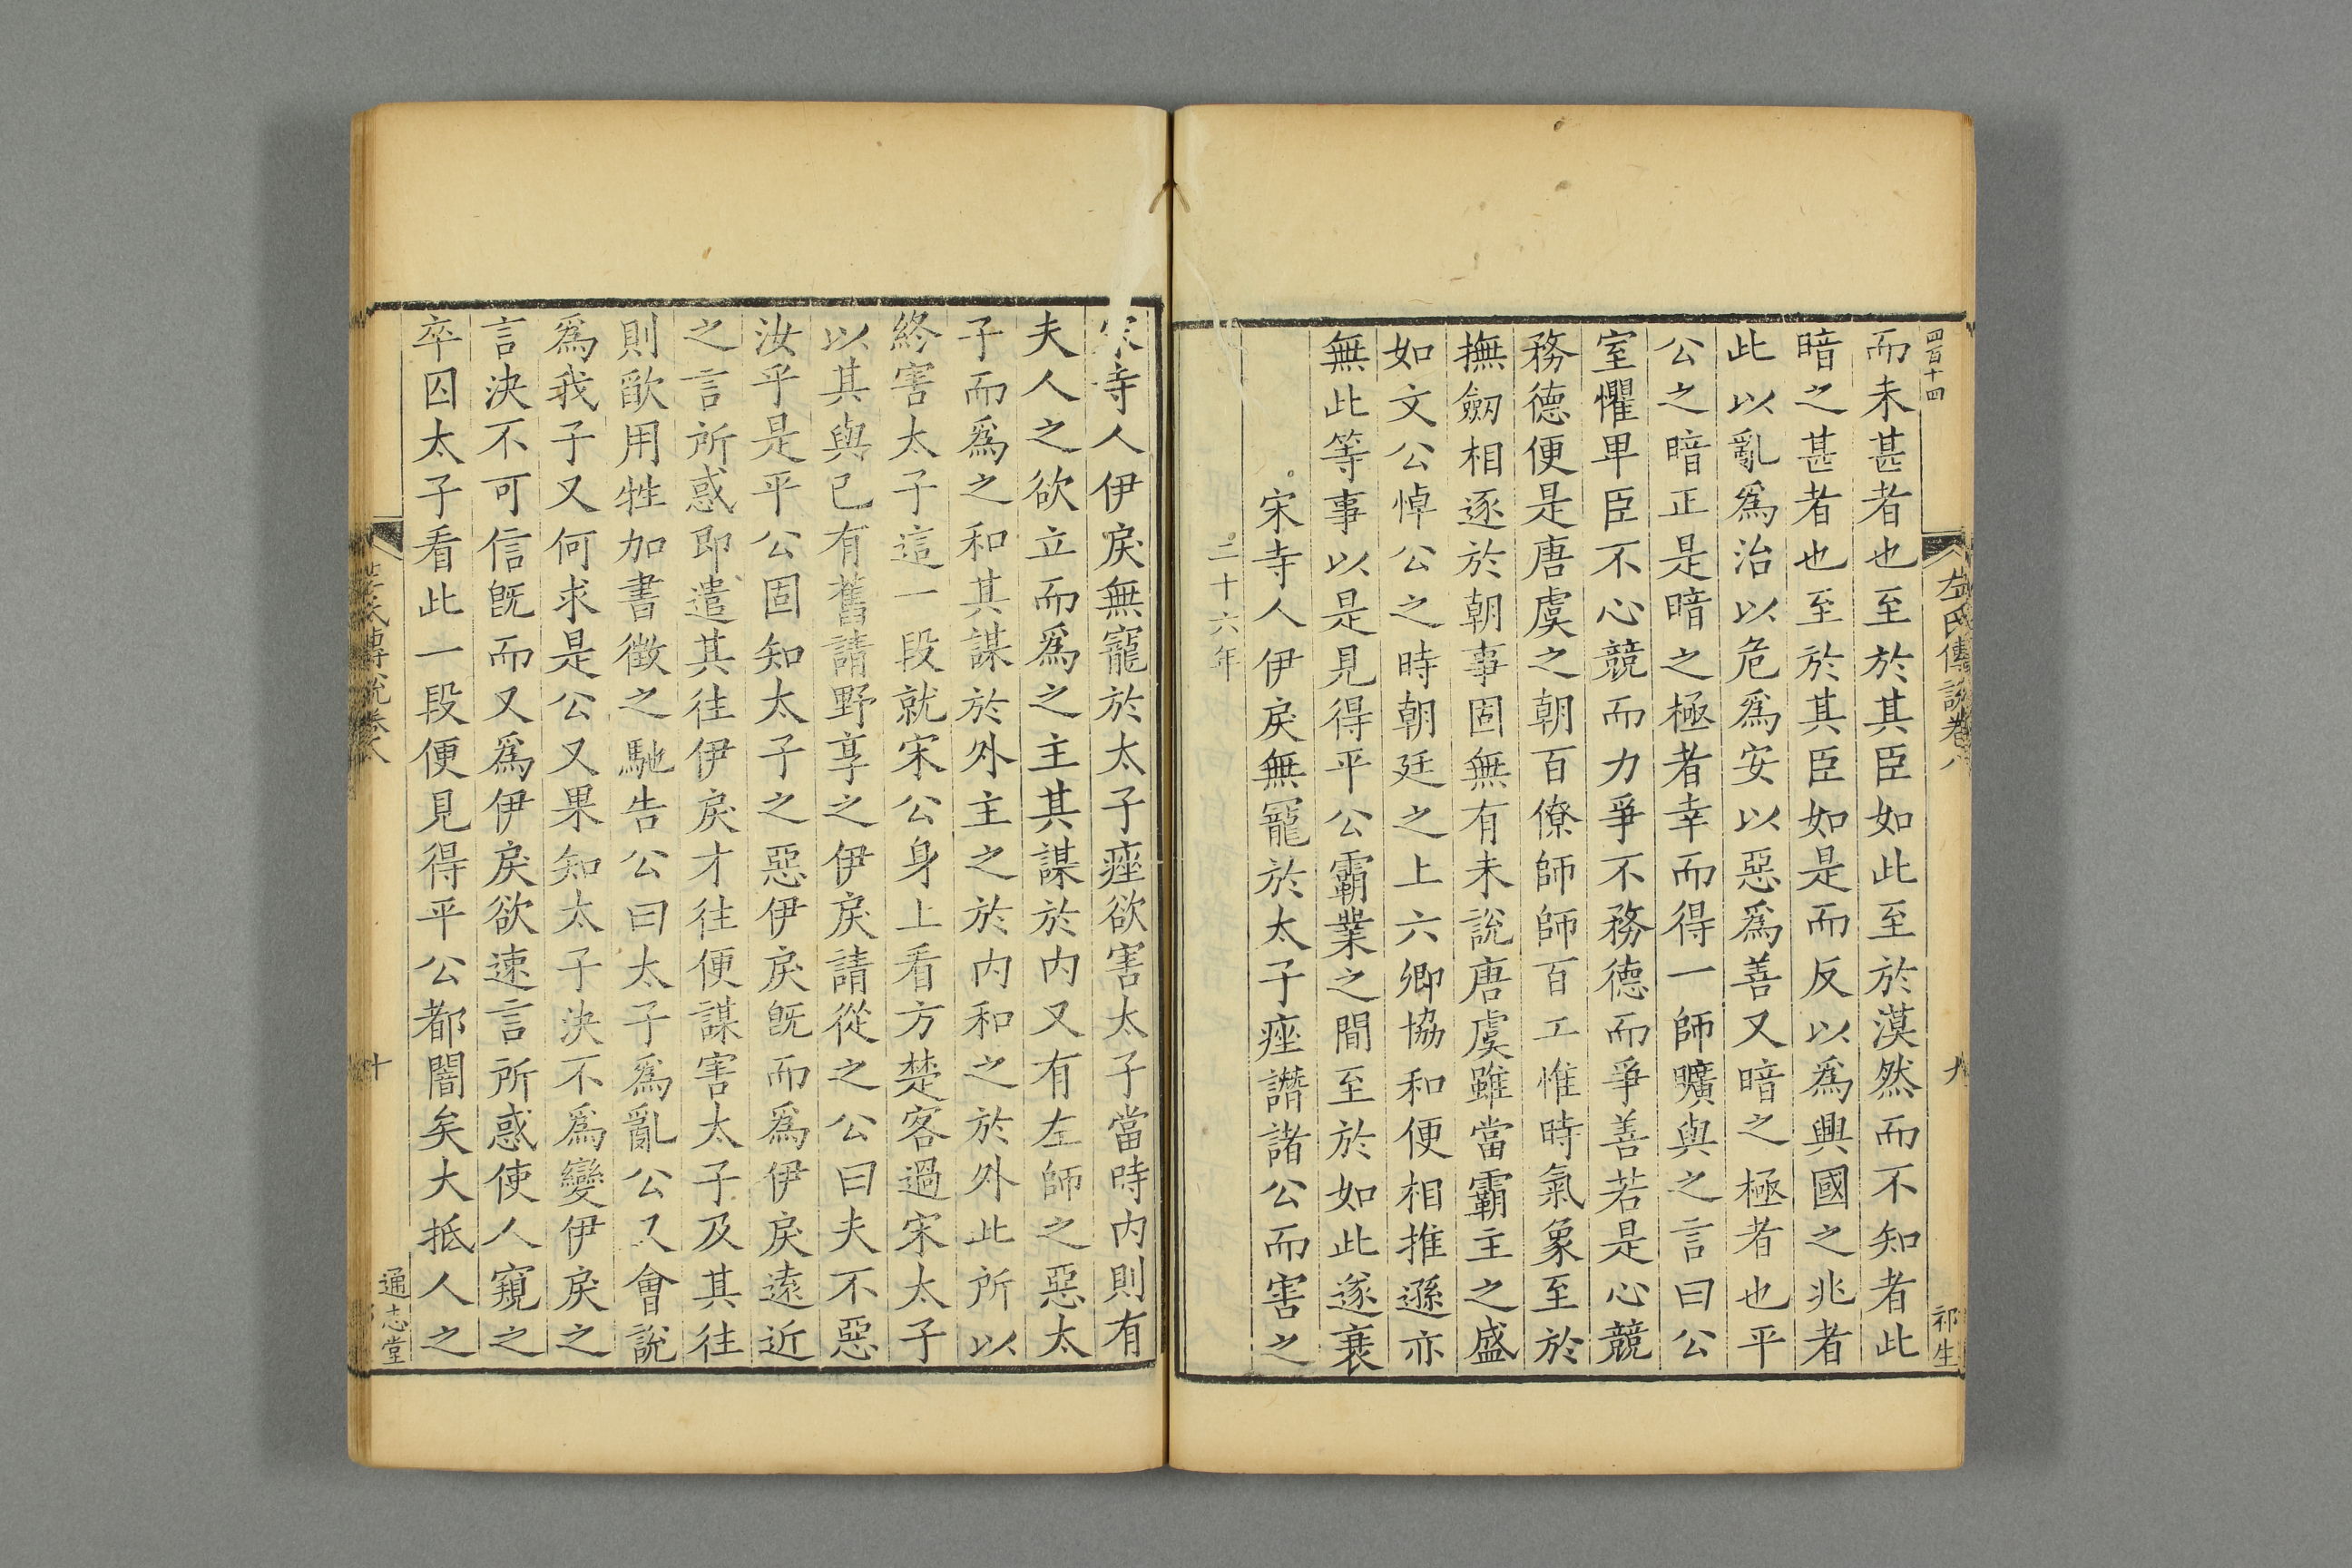 四百十四
左氏傳說卷八
九
祁生
而未甚者也至於其臣如此至於漠然而不知者此
暗之甚者也至於其臣如是而反以為興國之兆者
此以亂為治以危為安以惡為善又暗之極者也平
公之暗正是暗之極者幸而得一師曠與之言曰公
室懼卑臣不心競而力爭不務德而爭善若是心競
務德便是唐虞之朝百僚師師百工惟時氣象至於
撫劔相逐於朝事固無有未說唐虞雖當霸主之盛
如文公悼公之時朝廷之上六卿協和便相推遜亦
無此等事以是見得平公霸業之間至於如此遂衰
宋寺人伊戾無寵於太子痤譖諸公而害之
二十六年
宋寺人伊戾無寵於太子痤欲害太子當時内則有
夫人之欲立而為之主其謀於内又有左師之惡太
子而為之和其謀於外主之於内和之於外此所以
終害太子這一段就宋公身上看方楚客過宋太子
以其與已有舊請野享之伊戾請從之公曰夫不惡
汝乎是平公固知太子之惡伊戾旣而為伊戾遠近
之言所惑即遣其徃伊戾才往便謀害太子及其往
則歃用牲加書徵之馳告公曰太子為亂公又會說
為我子又何求是公又果知太子決不為變伊戾之
言決不可信旣而又為伊戾欲速言所惑使人窺之
卒囚太子看此一段便見得平公都闇矣大抵人之
左氏傳說卷八
十
通志堂